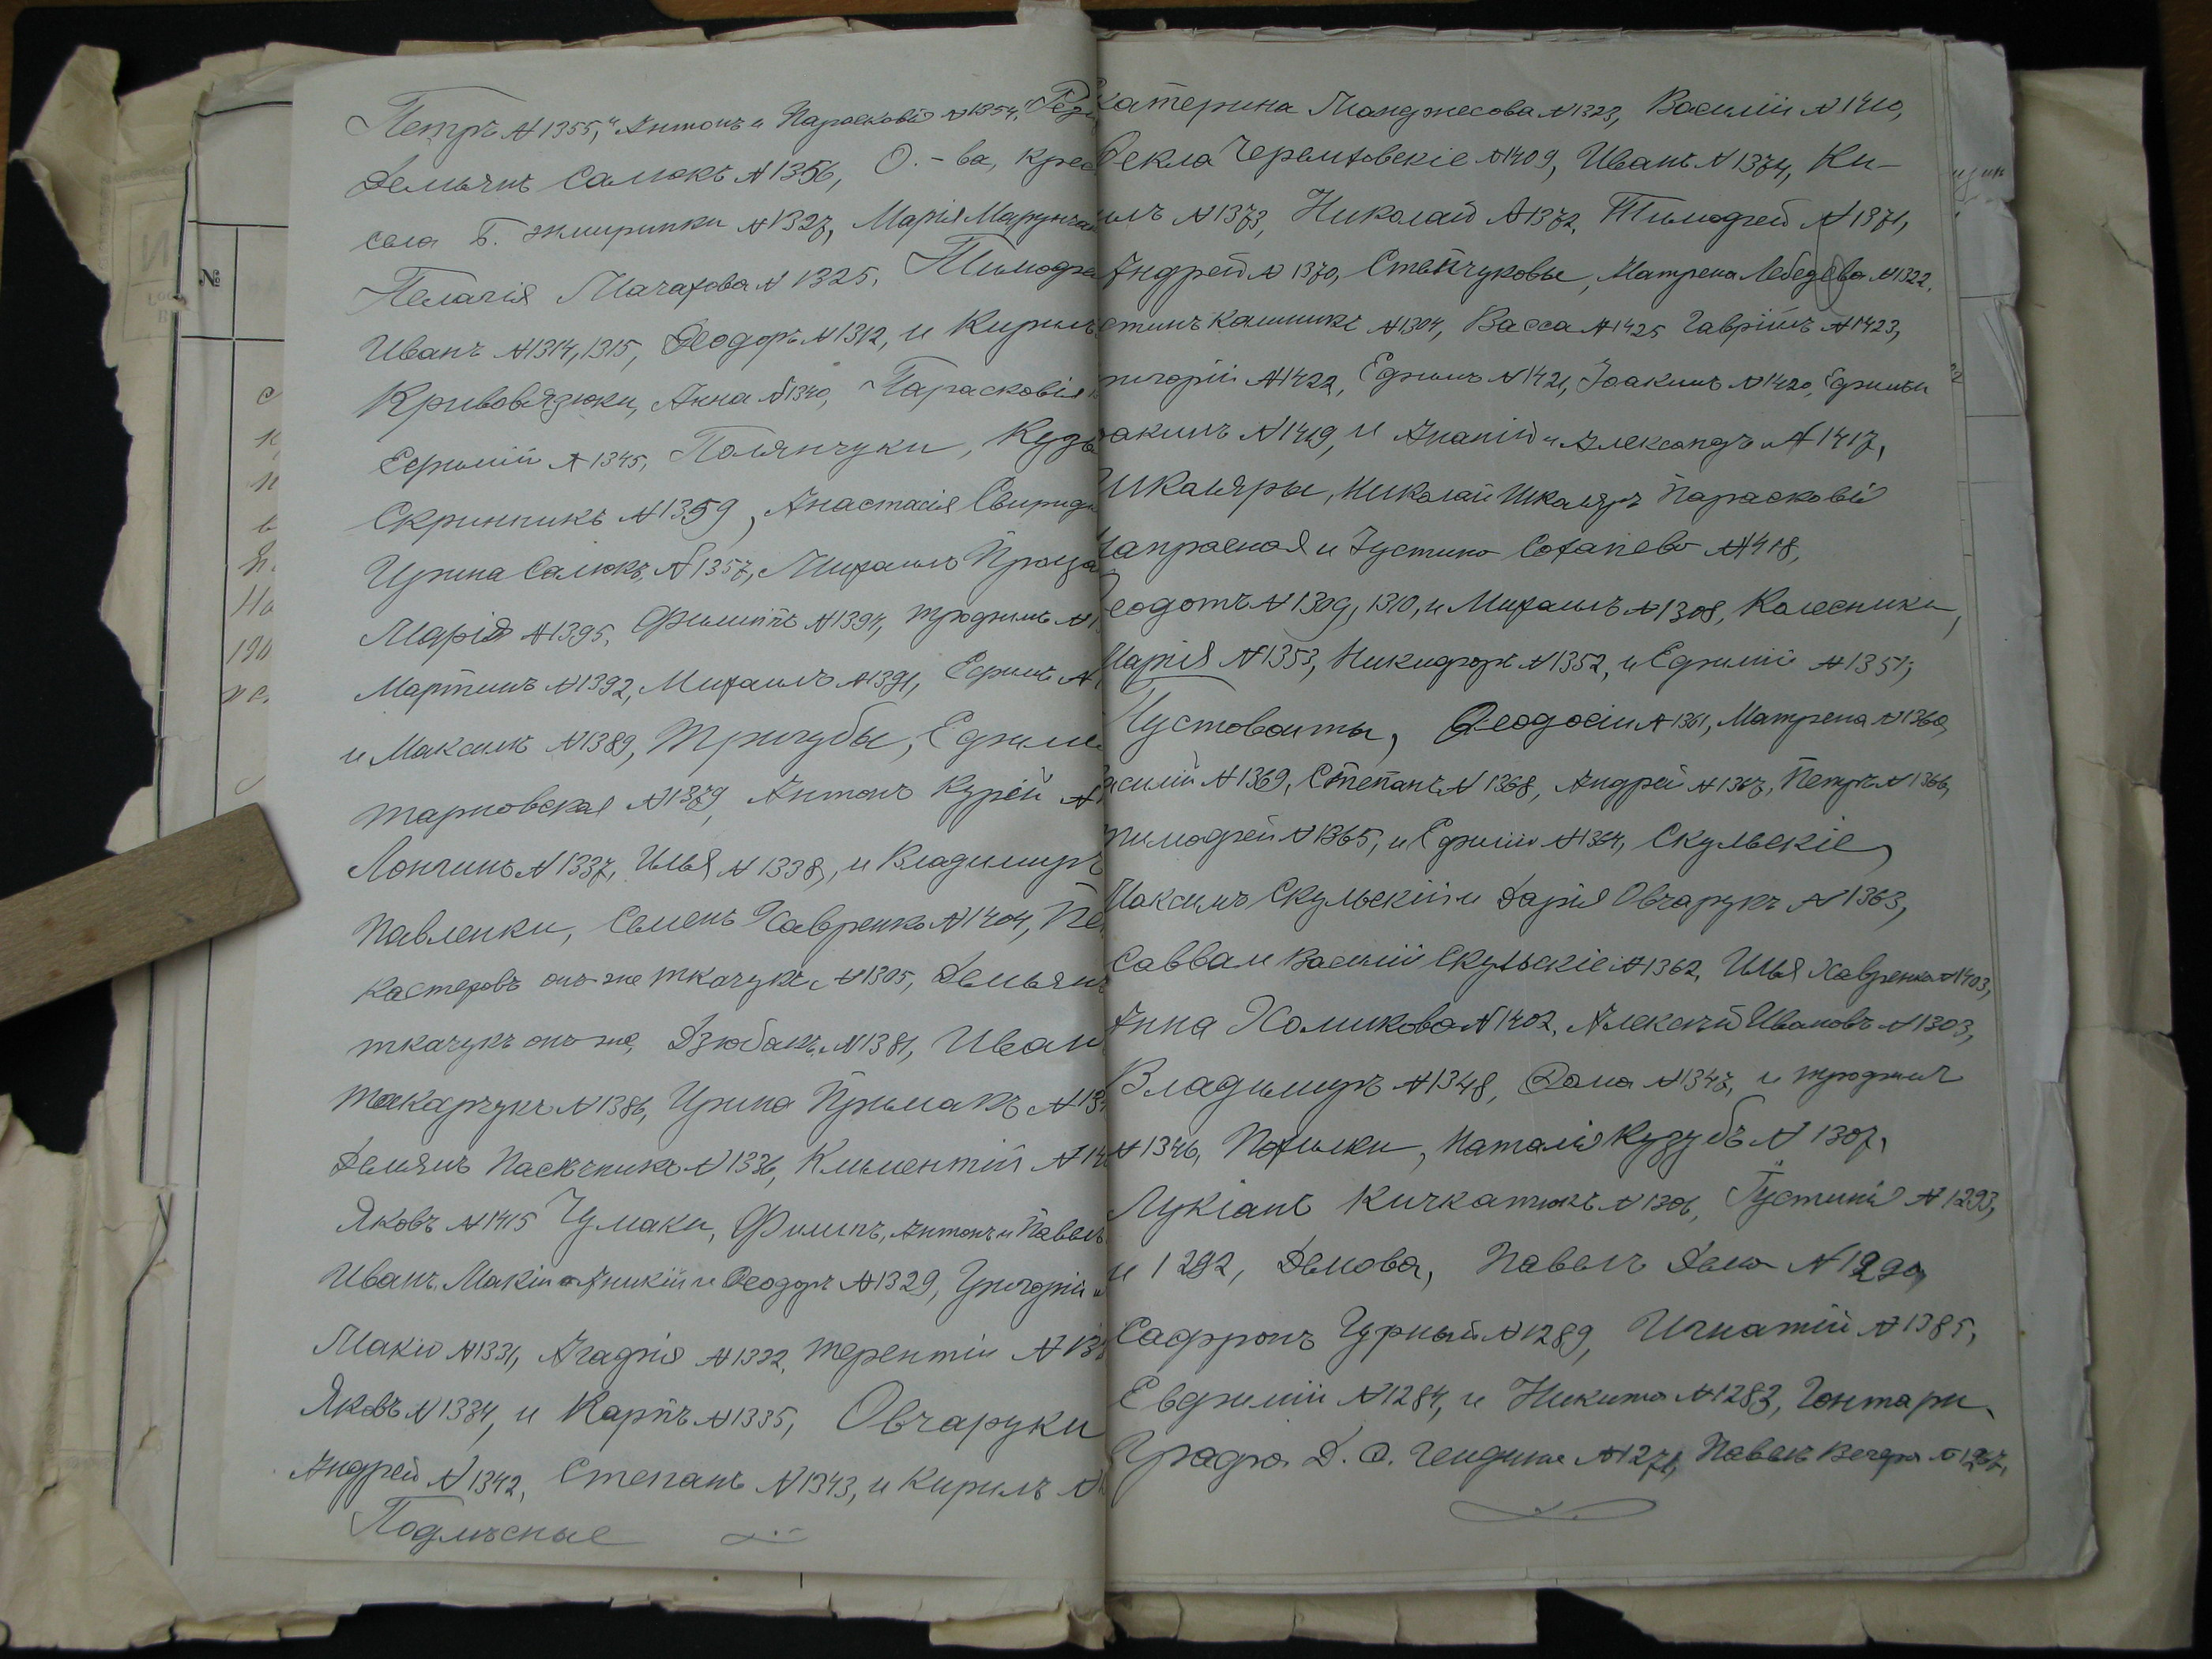 Петръ №1355, и Антонъ и Парасковія №1354,
Демьянъ Салюкъ №1356, О.-ва, крес
села Б. Жмиринки №1327, Марія
Пелагія Мачахова №1325, Тимофе
Иванъ №1314, 1315, Ѳеодоръ №1312, и Кирилъ
Кривовязюки, Анна №1340, Парасковія
Ефимій №1345, Полянчуки, Кузь
Скринникъ №1359, Анастасія Свирид
Ирина Салюкъ №1357, Михаилъ
Марія №1395, Филиппъ №1394, Трофимъ №
Мартинъ №1392, Михаилъ №1391, Ефимъ №
и Максимъ №1389, Тригубы, Ефим
Тарновская №1379, Антонъ Курій №
Лонгинъ №1337, Илья №1338, и Владимиръ
Павленки, Семенъ Хавренко №1404,
Кастеровъ онъ-же Ткачукъ №1305, Демьянъ
Ткачукъ онъ-же Дзюбакъ №1381, Иван
Макарчукъ №1386, Ирина Примакъ №13
Демянъ Пасечникъ №1336, Климентій №14
Яковъ №1415 Чумаки, Филипъ, Антонъ и Павелъ
Иванъ, Макій Аникій и Ѳеодоръ №1329, Григорій
Макій №1331, Агафія №1332, Терентій №13
Яковъ №1334, и Карпъ №1335, Овчаруки
Андрей №1342, Степанъ №1343, и Кирилъ №
Подлѣсные
катерина Манджосова №1323, Василій №1410,
Ѳекла Черемховскіе №1409, Иванъ №1374, Ки-
илъ №1373, Николай №1372, Тимофей №1371,
Андрей №1370, Стейчуковы, Матрена Лебедева №1322,
стинъ Калиникъ №1304, Васса №1425 Гавріилъ №1423,
ригорій №1422, Ефимъ №1421, Іоакимъ №1420, Ефимъ и
оакимъ №1419, и Ананій и Александръ №1417,
Шкаляры, Николай Шкаляръ Парасковія
Запрасная и Іустина №1418,
Ѳеодотъ №1309, 1310, и Михаилъ №1308, Колесники,
Марія №1353, Никифоръ №1352, и Ефимій №1351,
Пустовойты, Ѳеодосій №1361, Матрена №1360,
асилій №1369, Степанъ №1368, Андрей №1367, Петръ №1366,
тимофей №1365, и Ефимій №1364, Скульскіе,
Максимъ Скульскій и Дарія Овчарукъ №1363,
Савва и Василій Скульскіе №1362, Илья Хавренко №1403,
Анна Хомикова №1402, Алексѣй Ивановъ №1303,
Владимиръ №1348, Ѳома №1347, и Трофимъ
№1346, Похилки, Наталія Кузубъ №1307,
Лукіанъ Кичкатюкъ №1306, Іустинія №1293,
и 1292, Демова, Павелъ №1290,
Сафронъ Гурный №1289, Игнатій №1385,
Евфимій №1284, и Никита №1283, Гонтари,
Графа Д. Ѳ. Гендина №1271, Павелъ Вечера №1267.